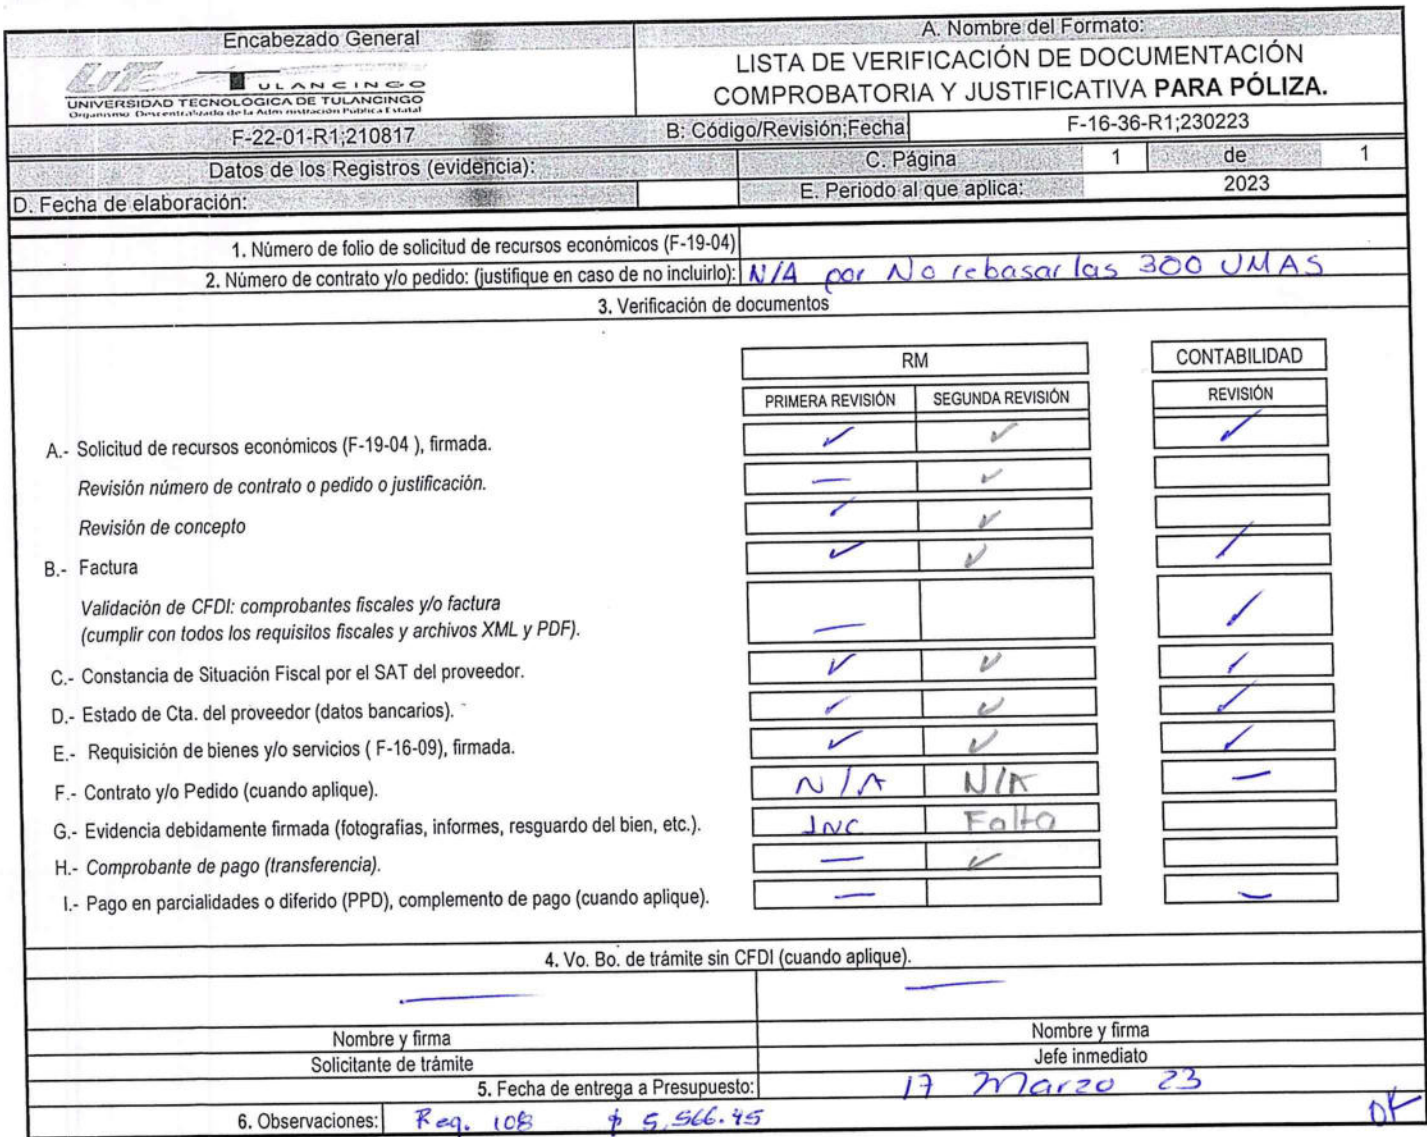 Encabezado General
A. Nombre del Formato:
UT TULANCINGO
UNIVERSIDAD TECNOLÓGICA DE TULANCINGO
Organismo Descentralizado de la Administración Pública Estatal
LISTA DE VERIFICACIÓN DE DOCUMENTACIÓN
COMPROBATORIA Y JUSTIFICATIVA PARA PÓLIZA.
F-22-01-R1;210817
B: Código/Revisión;Fecha
F-16-36-R1;230223
Datos de los Registros (evidencia):
C. Página 1 de 1
D. Fecha de elaboración:
E. Periodo al que aplica: 2023
1. Número de folio de solicitud de recursos económicos (F-19-04)
2. Número de contrato y/o pedido: (justifique en caso de no incluirlo): N/A por No rebasar las 300 UMAS
3. Verificación de documentos
RM
CONTABILIDAD
PRIMERA REVISIÓN SEGUNDA REVISIÓN REVISIÓN
A.- Solicitud de recursos económicos (F-19-04 ), firmada. ✓ ✓ ✓
Revisión número de contrato o pedido o justificación. — ✓
Revisión de concepto ✓ ✓
B.- Factura ✓ ✓ ✓
Validación de CFDI: comprobantes fiscales y/o factura
(cumplir con todos los requisitos fiscales y archivos XML y PDF). — ✓
C.- Constancia de Situación Fiscal por el SAT del proveedor. ✓ ✓ ✓
D.- Estado de Cta. del proveedor (datos bancarios). ✓ ✓ ✓
E.- Requisición de bienes y/o servicios ( F-16-09), firmada. ✓ ✓ ✓
F.- Contrato y/o Pedido (cuando aplique). N/A N/A —
G.- Evidencia debidamente firmada (fotografías, informes, resguardo del bien, etc.). INC Falta
H.- Comprobante de pago (transferencia). — ✓
I.- Pago en parcialidades o diferido (PPD), complemento de pago (cuando aplique). — —
4. Vo. Bo. de trámite sin CFDI (cuando aplique).
— —
Nombre y firma Nombre y firma
Solicitante de trámite Jefe inmediato
5. Fecha de entrega a Presupuesto: 17 Marzo 23
6. Observaciones: Req. 108 $ 5,566.45 OK